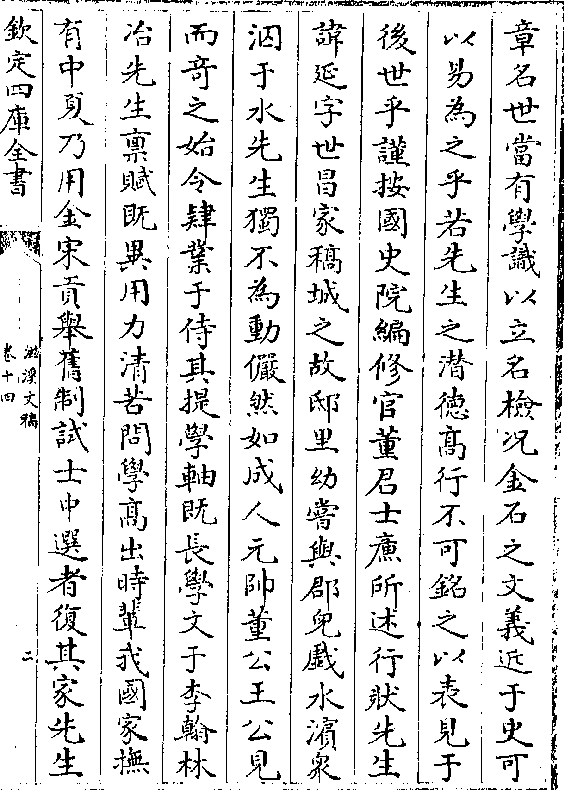 章名世當有學識以立名檢况金石之文義近于史可
以易為之乎若先生之潜德髙行不可銘之以表見于
後世乎謹按國史院編修官董君士廉所述行狀先生
諱延字世昌家稿城之故邸里幼嘗與郡兒戲水濱衆
泅于水先生獨不為動儼然如成人元帥董公王公見
而竒之始令肄業于侍其提學軸既長學文于李翰林
冶先生禀賦既異用力清苦問學髙出時輩我國家撫
有中夏乃用金宋貢舉舊制試士中選者復其家先生
欽定四庫全書
滋溪文稿
卷十四
二